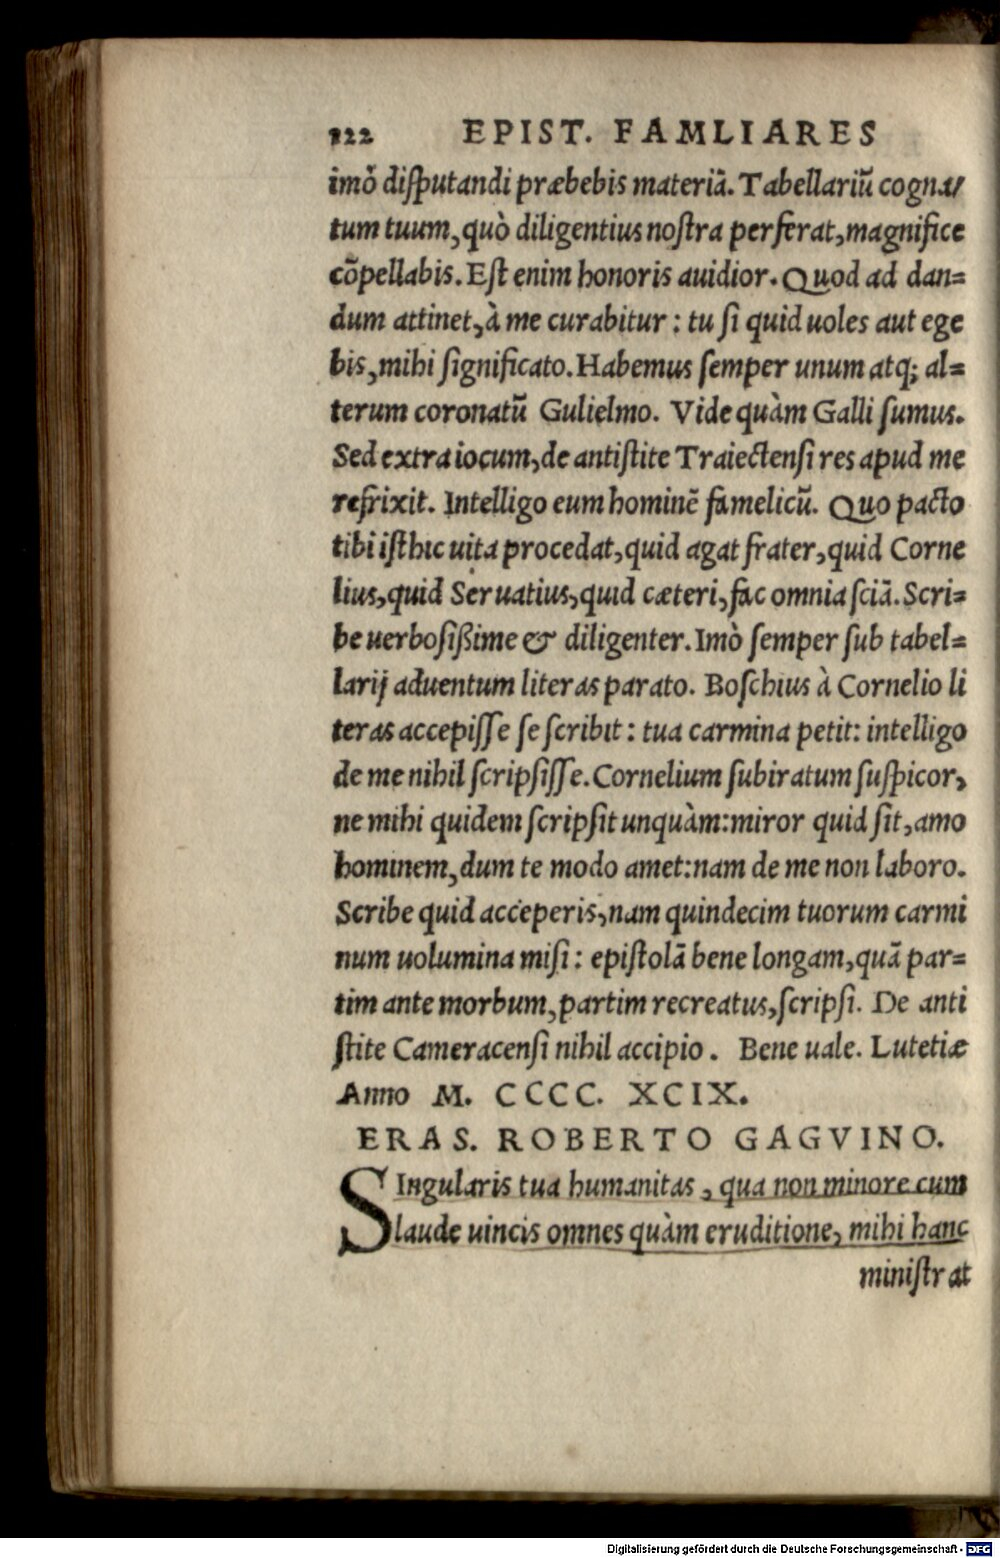 122 EPIST. FAMLIARES
imõ disputandi præbebis materiã. Tabellariũ cogna/
tum tuum, quò diligentius nostra perferat, magnifice
cõpellabis. Est enim honoris auidior. Quod ad dan=
dum attinet, à me curabitur : tu si quid uoles aut ege
bis, mihi significato. Habemus semper unum atq; al=
terum coronatũ Gulielmo. Vide quàm Galli sumus.
Sed extra iocum, de antistite Traiectensi res apud me
refrixit. Intelligo eum hominẽ famelicũ. Quo pacto
tibi isthic uita procedat, quid agat frater, quid Corne
lius, quid Seruatius, quid cæteri, fac omnia sciã. Scri=
be uerbosißime & diligenter. Imò semper sub tabel=
larij aduentum literas parato. Boschius à Cornelio li
teras accepisse se scribit : tua carmina petit: intelligo
de me nihil scripsisse. Cornelium subiratum suspicor,
ne mihi quidem scripsit unquàm: miror quid sit, amo
hominem, dum te modo amet: nam de me non laboro.
Scribe quid acceperis, nam quindecim tuorum carmi
num uolumina misi : epistolã bene longam, quã par=
tim ante morbum, partim recreatus, scripsi. De anti
stite Cameracensi nihil accipio . Bene uale. Lutetiæ
Anno M. CCCC. XCIX.
ERAS. ROBERTO GAGVINO.
SIngularis tua humanitas , qua non minore cum
laude uincis omnes quàm eruditione, mihi hanc
ministrat
Digitalisierung gefördert durch die Deutsche Forschungsgemeinschaft - DFG